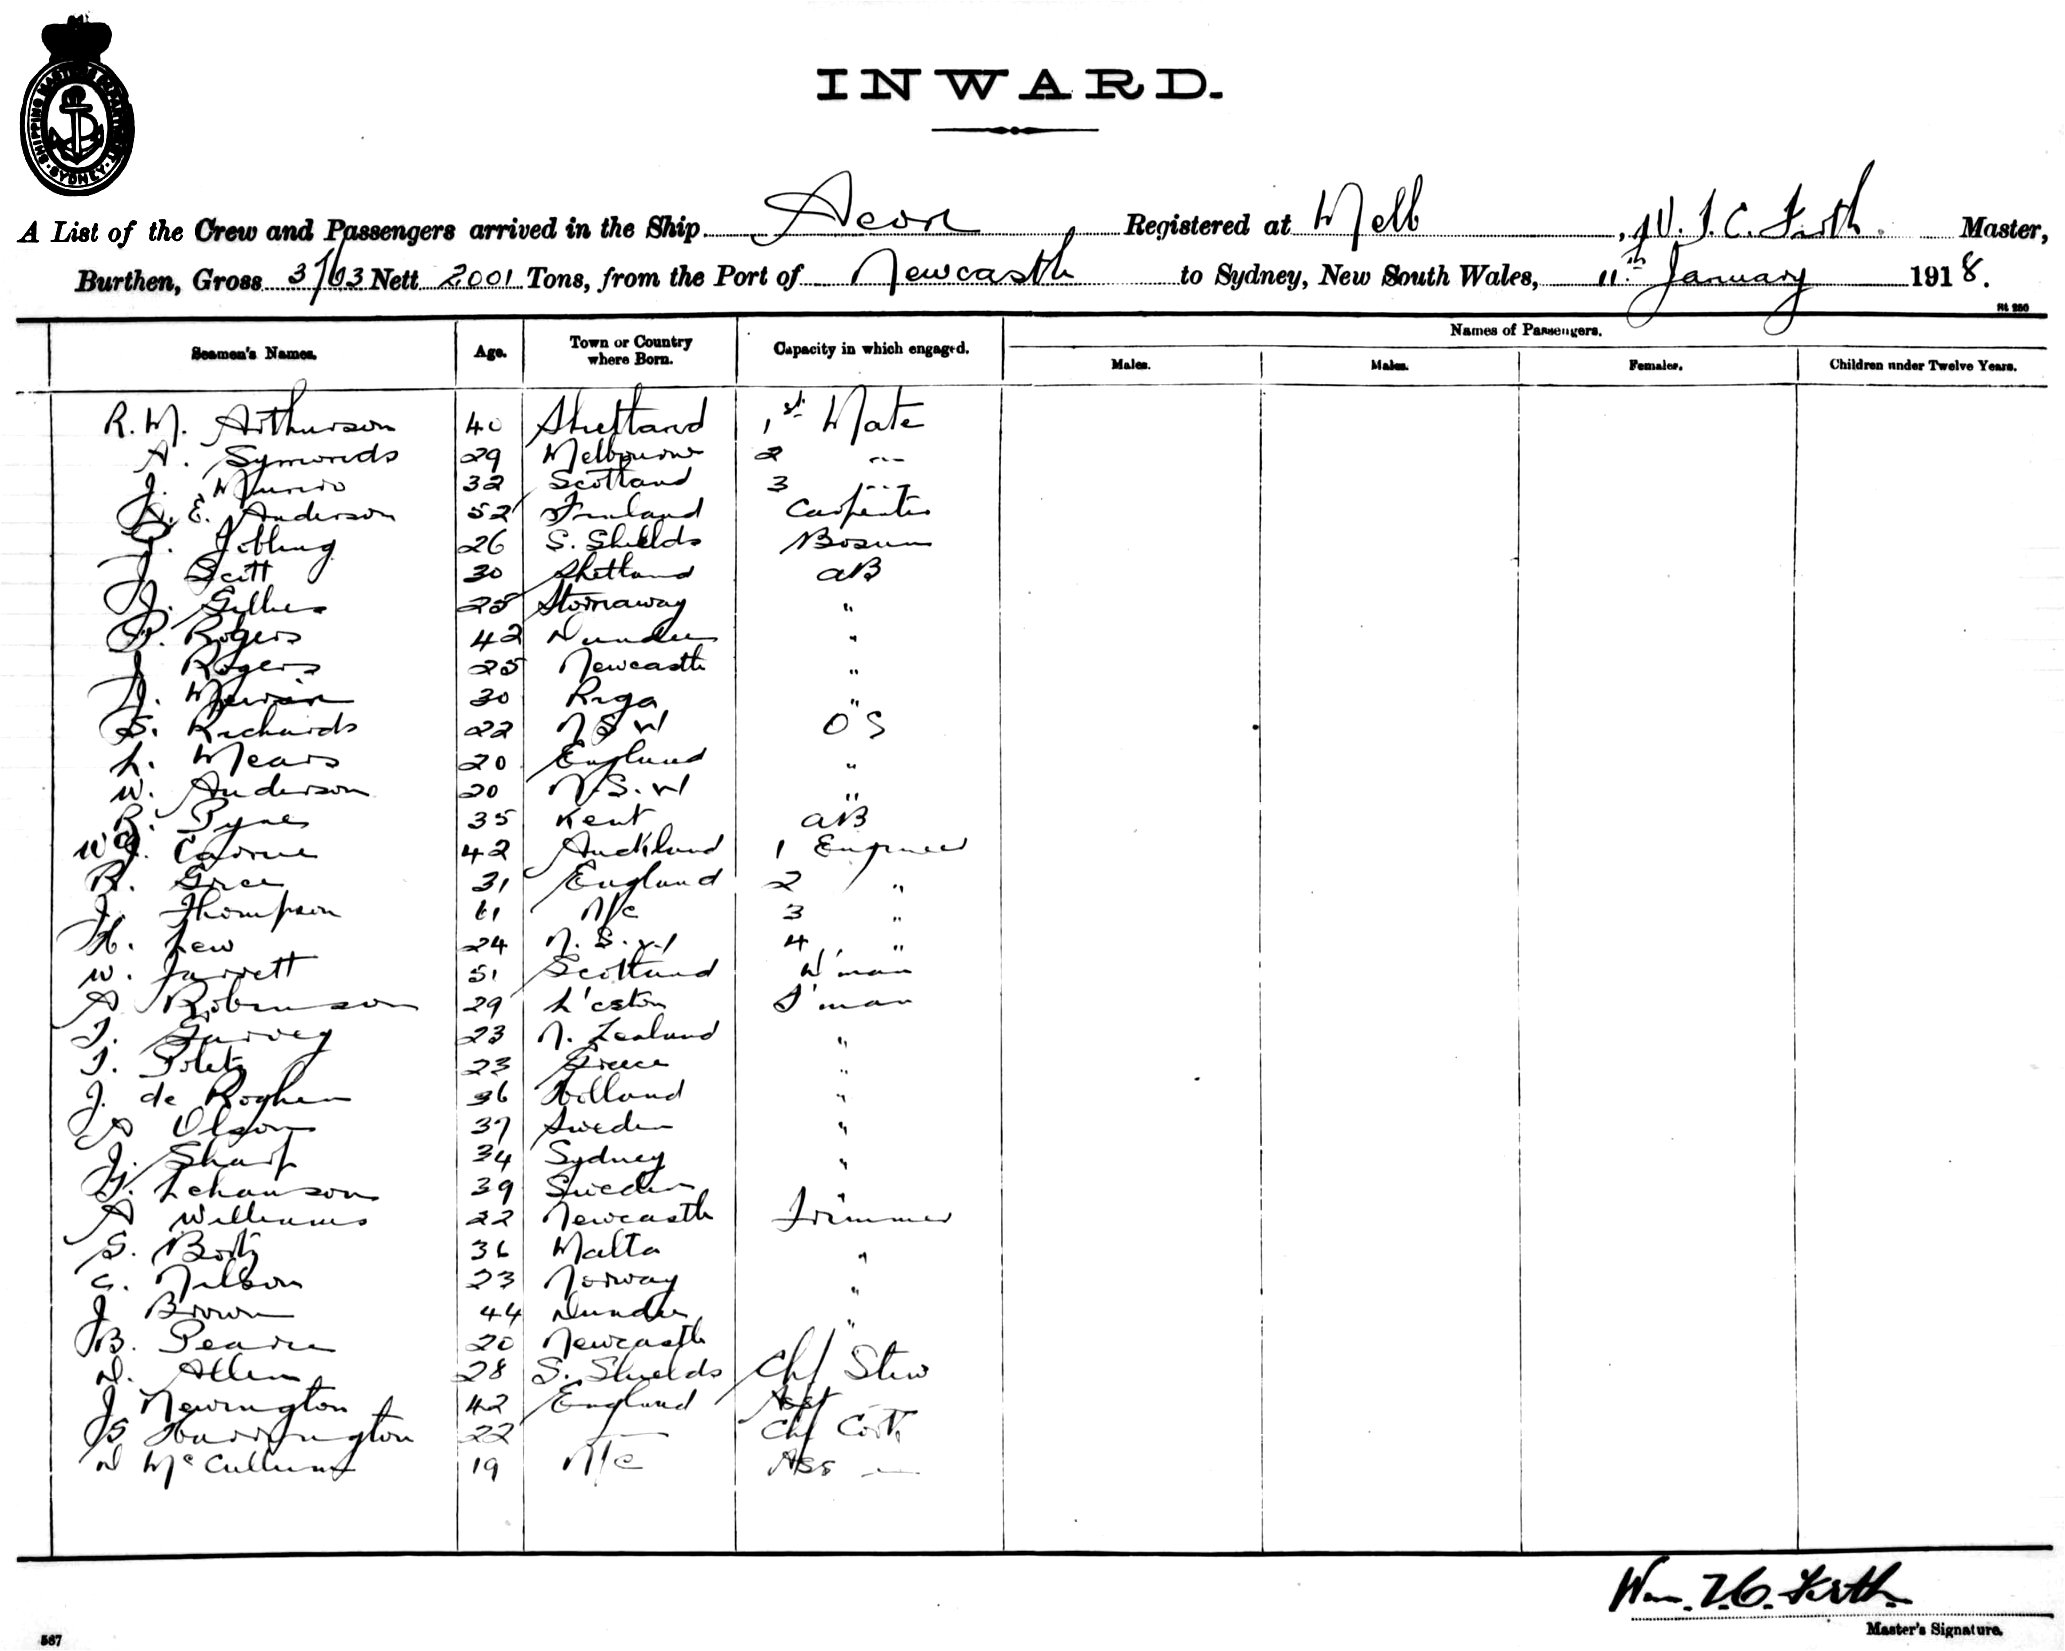 SHIPPING MASTER'S DEPARTMENT · SYDNEY ·
INWARD.
A List of the Crew and Passengers arrived in the Ship Aeon Registered at Melb, W. T. C. Firth. Master,
Burthen, Gross Nett 2001 Tons, from the Port of Newcastle to Sydney, New South Wales, 11th January 1918.
Rt 250
Seamen's Names. Age. Town or Country where Born. Capacity in which engaged. Names of Passengers.
Males. Males. Females. Children under Twelve Years.
R. M. Arthurson 40 Shetland 1st Mate
A. Symonds 29 Melbourne 2 "
J. Munro 32 Scotland 3 "
E. Anderson 52 Finland Carpenter
J. Jobling 26 S. Shields Bosun
J. Scott 30 Shetland AB
J. Gillies 25 Stornaway "
P. Rogers 42 Dundee "
J Rogers 25 Newcastle "
J. 30 Riga "
S. Richards 22 N S W O S
L. Mears 20 England "
W. Anderson 20 N. S. W "
R. Pyne 35 Kent AB
Cairne 42 Auckland 1 Engineer
R. Gree 31 England 2 "
J. Thompson 61 N/c 3 "
H. Lew 24 N. S. W 4 "
W. Jarrett 51 Scotland D'man
A Robinson 29 L'eston F'man
T. Garvey 23 N. Zealand "
T. 23 Greece "
J. de Roghen 36 Holland "
A Olson 37 Sweden "
J. Sharp 34 Sydney "
G. Lehanson 39 Sweden "
A Williams 22 Newcastle Trimmer
S. 36 Malta "
C. Nilson 23 Norway "
J Brown 44 Dundee "
B. Pearce 20 Newcastle
D. Allen 28 S. Shields Chf Stew
J Newington 42 England Asst
Harrington 22 Chf Cook
D McCullum 19 N/c Ass —
Wm. T. C. Firth.
Master's Signature.
567